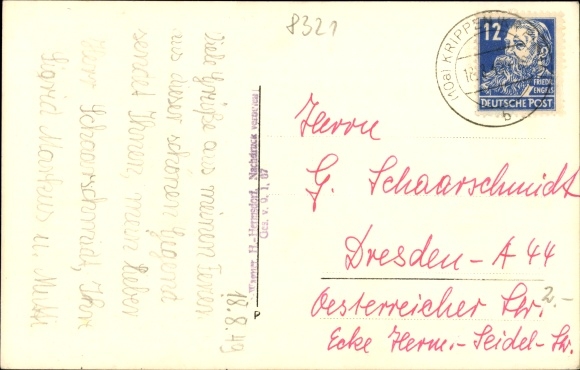 8321
18.8.49
Viele Grüße aus meinen Ferien
aus dieser schönen Gegend
sendet Ihnen, mein lieber
Herr Schaarschmidt, Ihre
Sigrid Markus u. Mutti
Wagner, H.-Hermsdorf, Nachdruck verboten!
Gez. V. 0, 1, 07
P
(10a) KRIPPEN
18.
b
12
FRIEDR.
ENGELS
DEUTSCHE POST
Herrn
G. Schaarschmidt
Dresden-A 44
Oesterreicher Str. 2.-
Ecke Herm.-Seidel-Str.